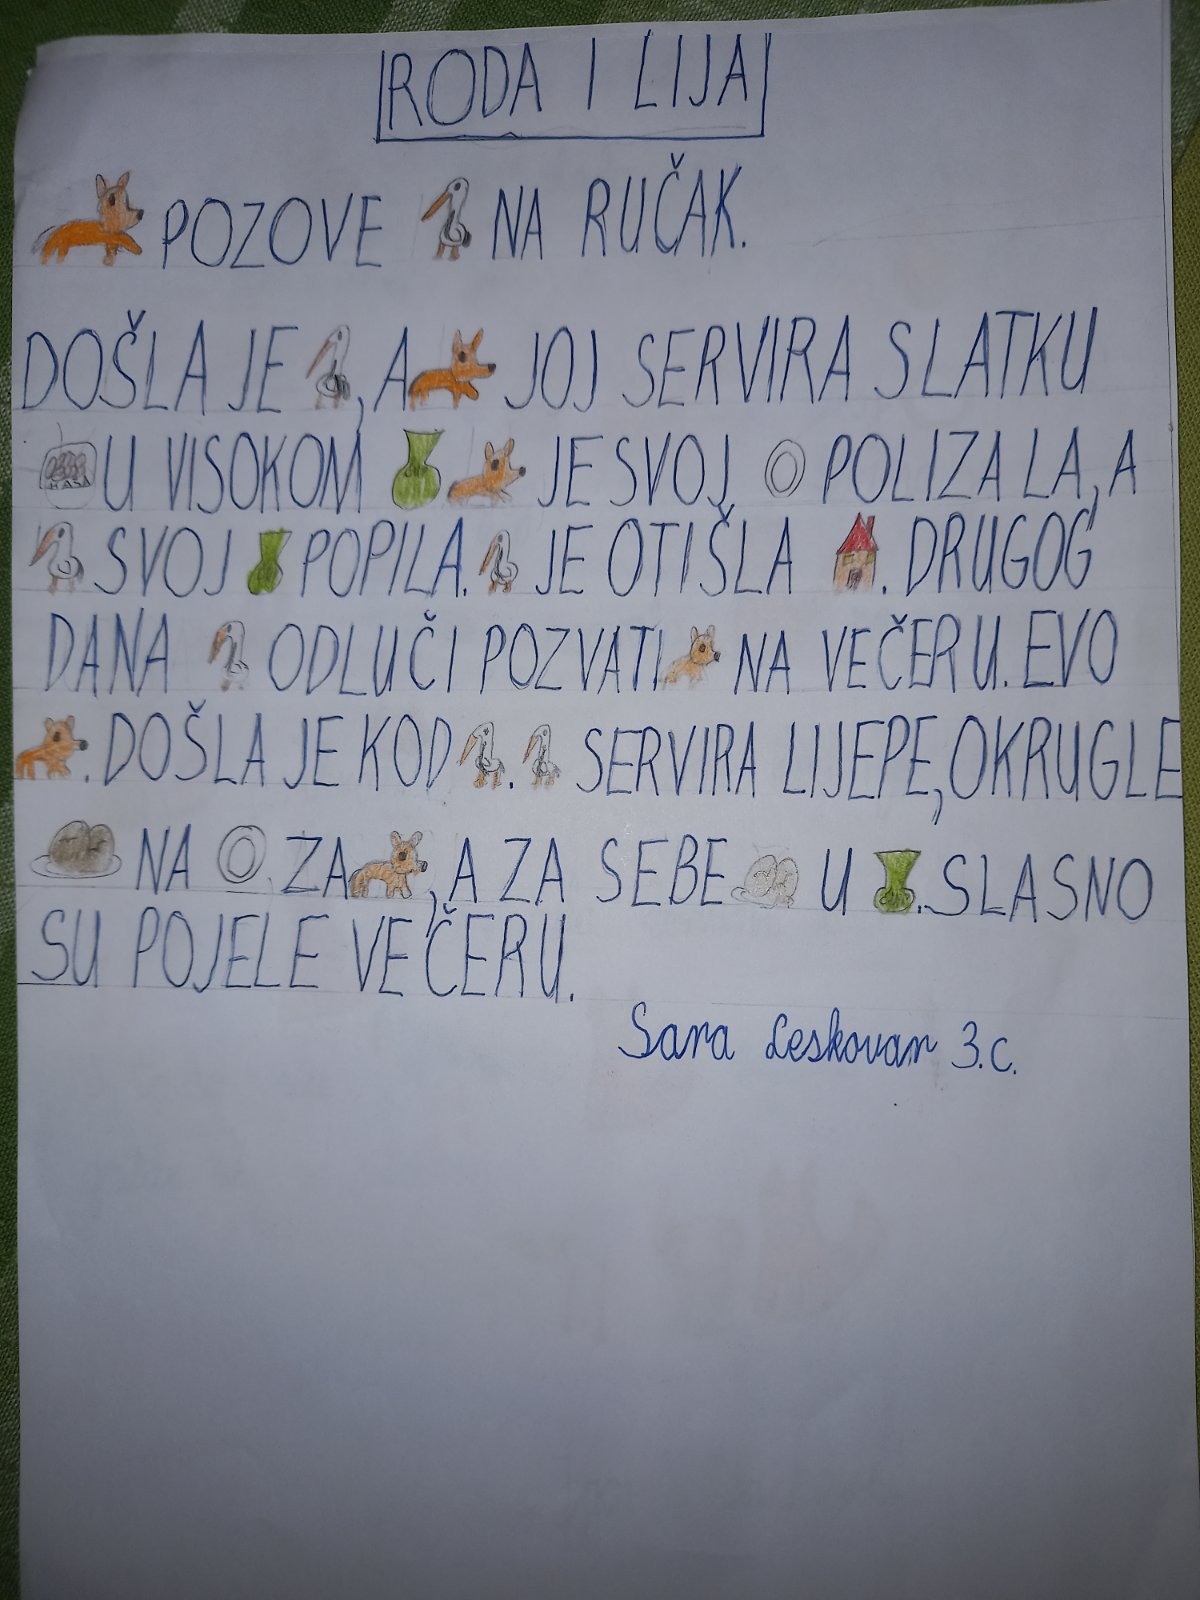 RODA I LIJA
POZOVE NA RUČAK.
DOŠLA JE , A JOJ SERVIRA SLATKU
U VISOKOM JE SVOJ POLIZALA, A
SVOJ POPILA. JE OTIŠLA . DRUGOG
DANA ODLUČI POZVATI NA VEČERU. EVO
. DOŠLA JE KOD . SERVIRA LIJEPE, OKRUGLE
NA ZA , A ZA SEBE U . SLASNO
SU POJELE VEČERU.
Sara Leskovar 3.c.